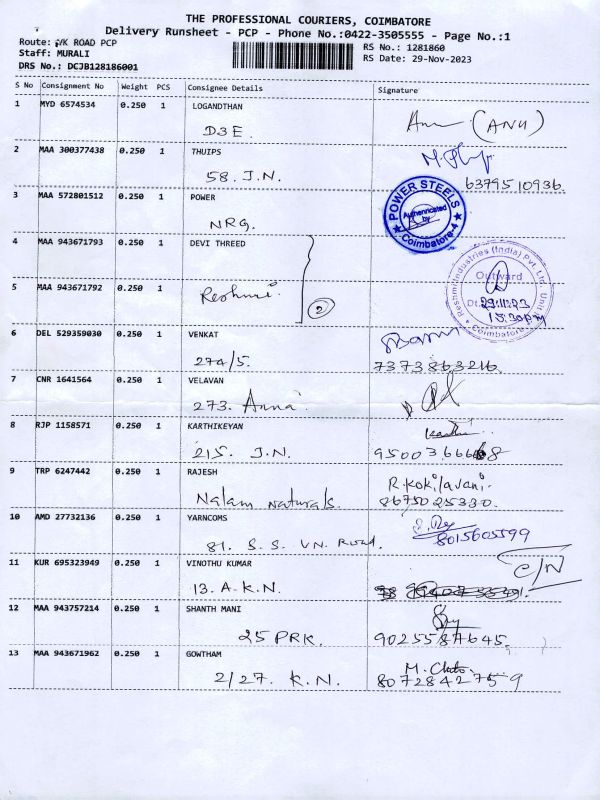 THE PROFESSIONAL COURIERS, COIMBATORE
Delivery Runsheet - PCP - Phone No.:0422-3505555 - Page No.:1
Route: VK ROAD PCP
RS No.: 1281860
Staff: MURALI
RS Date: 29-Nov-2023
DRS No.: DCJB128186001
S No Consignment No Weight PCS Consignee Details Signature
1 MYD 6574534 0.250 1 LOGANDTHAN
D3E. (ANU)
2 MAA 300377438 0.250 1 THUIPS
58. J.N. 6379510936.
3 MAA 572801512 0.250 1 POWER
NRG.
POWER STEELS
Authenticated by
Coimbatore-4
4 MAA 943671793 0.250 1 DEVI THREED
5 MAA 943671792 0.250 1
Reshmi. 2
Reshmi Industries (India) Pvt. Ltd. Unit
Outward
Dt. 29.11.23
15:30pm
Coimbatore
6 DEL 529359030 0.250 1 VENKAT
274/5. 7373863216.
7 CNR 1641564 0.250 1 VELAVAN
273. Anna
8 RJP 1158571 0.250 1 KARTHIKEYAN
215. J.N. 9500366668
9 TRP 6247442 0.250 1 RAJESH
Nalam Naturals. R.Kokilavani.
8675025330.
10 AMD 27732136 0.250 1 YARNCOMS
81. S.S. VN. Road. 8015605599
11 KUR 695323949 0.250 1 VINOTHU KUMAR
13. A.K.N. C/N
12 MAA 943757214 0.250 1 SHANTH MANI
25 PRK. 9025587645.
13 MAA 943671962 0.250 1 GOWTHAM
2/27. K.N. 8072842759